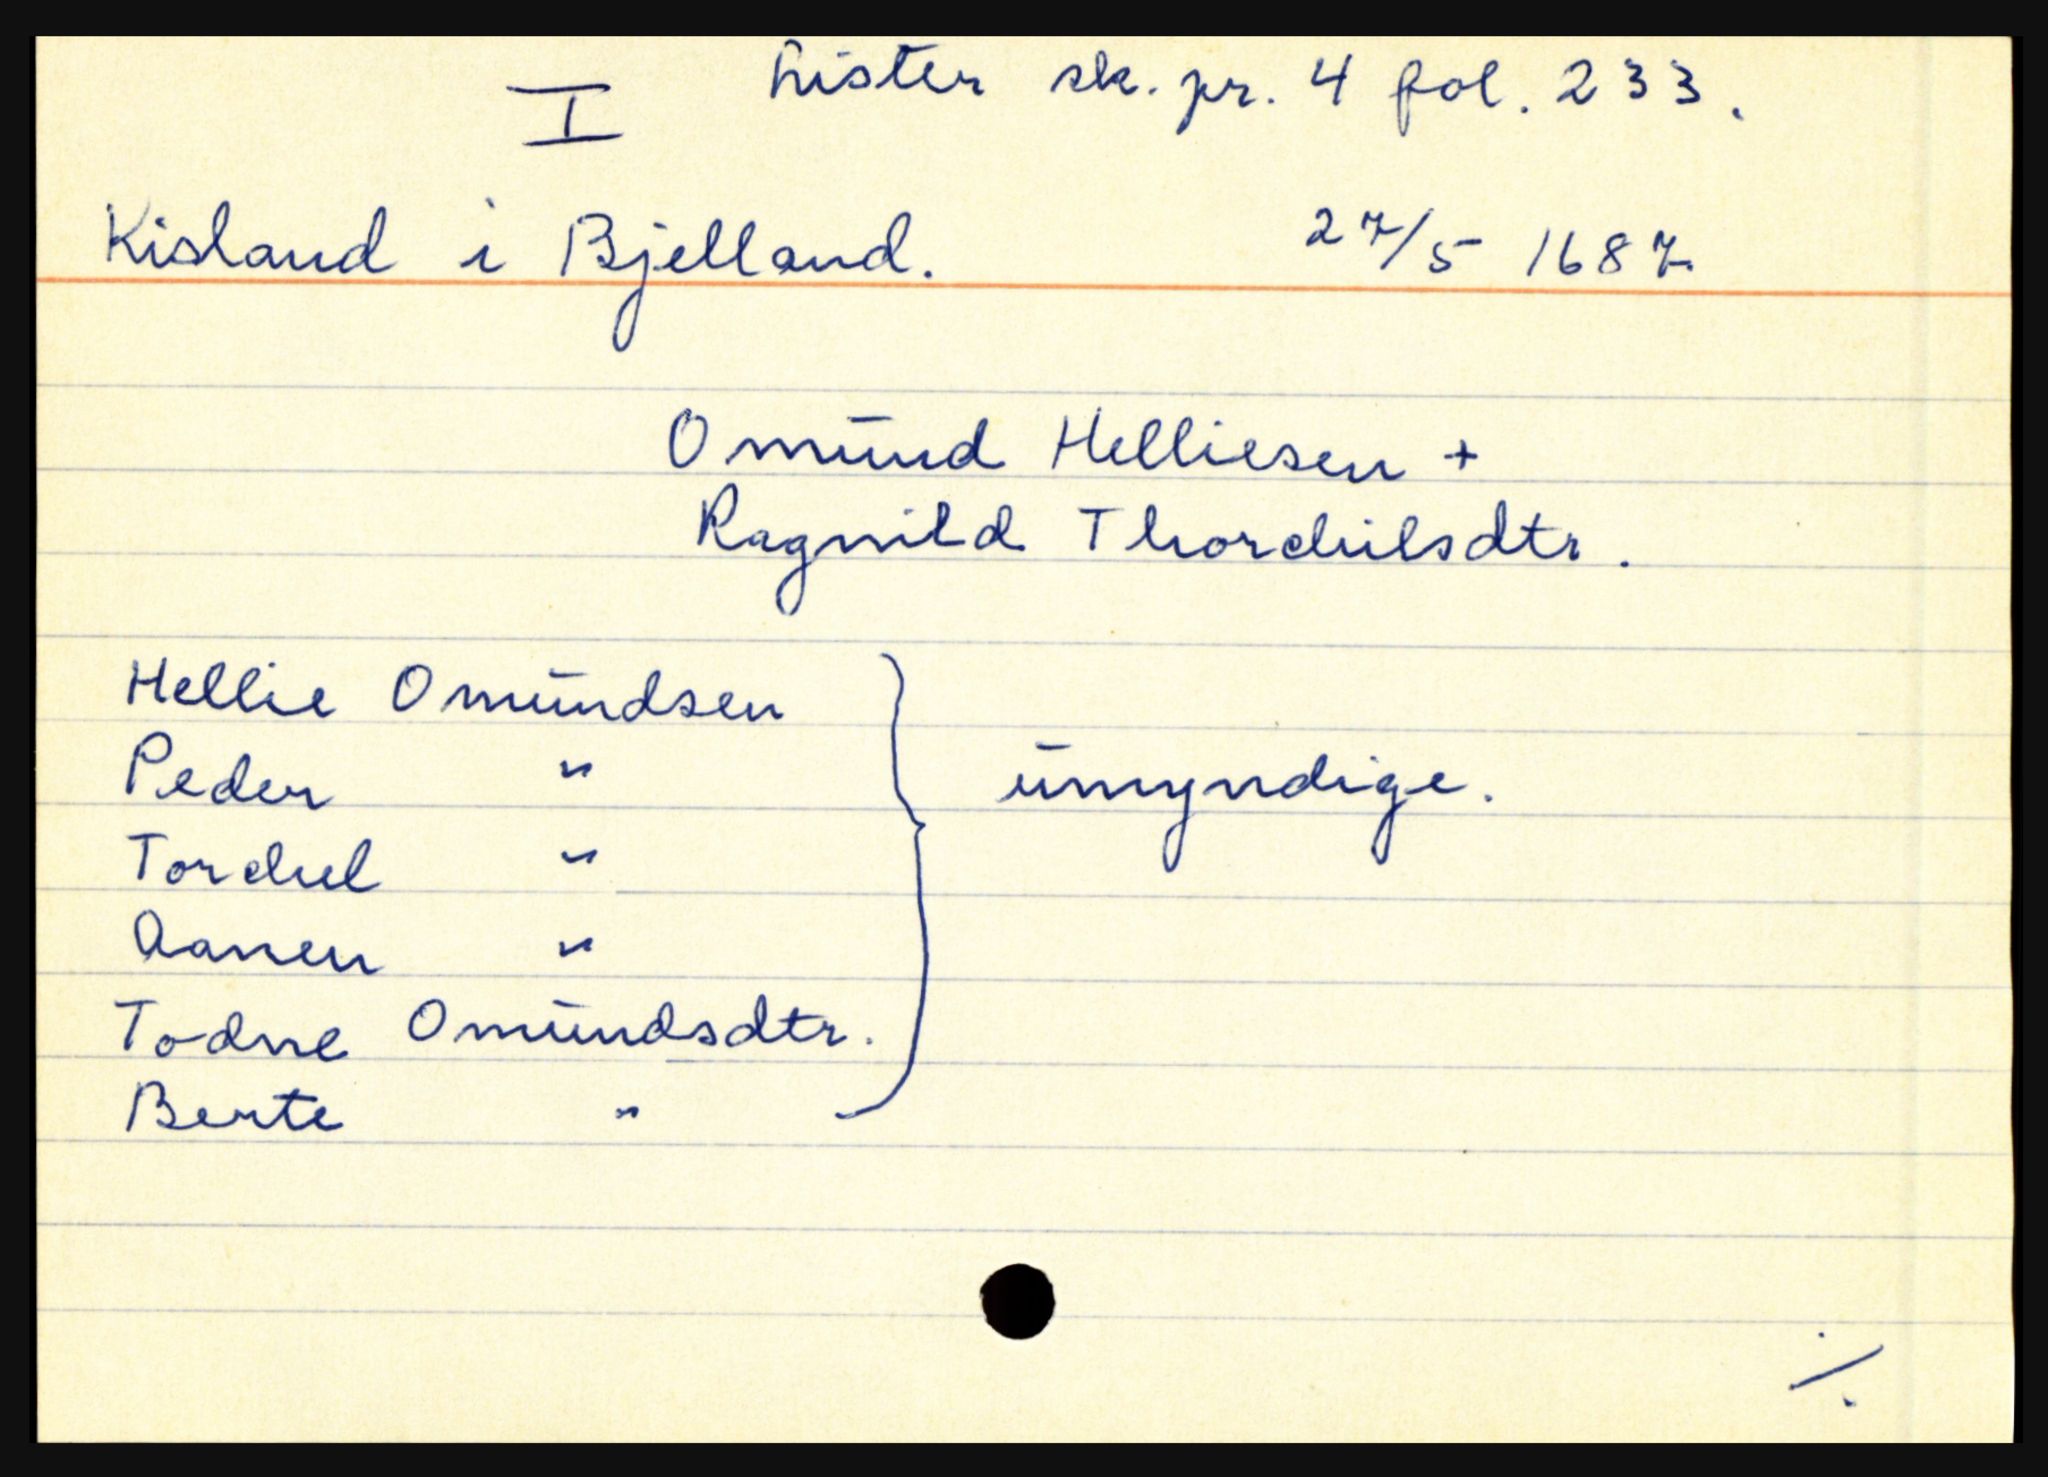 I Lister sk. pr. 4 fol. 233.
Kisland i Bjelland. 27/5 1687
Omund Helliesen +
Ragnild Thorchilsdtr.
Hellie Omundsen
Peder " umyndige.
Torchel "
Aanen "
Todne Omundsdtr.
Berte "
./.